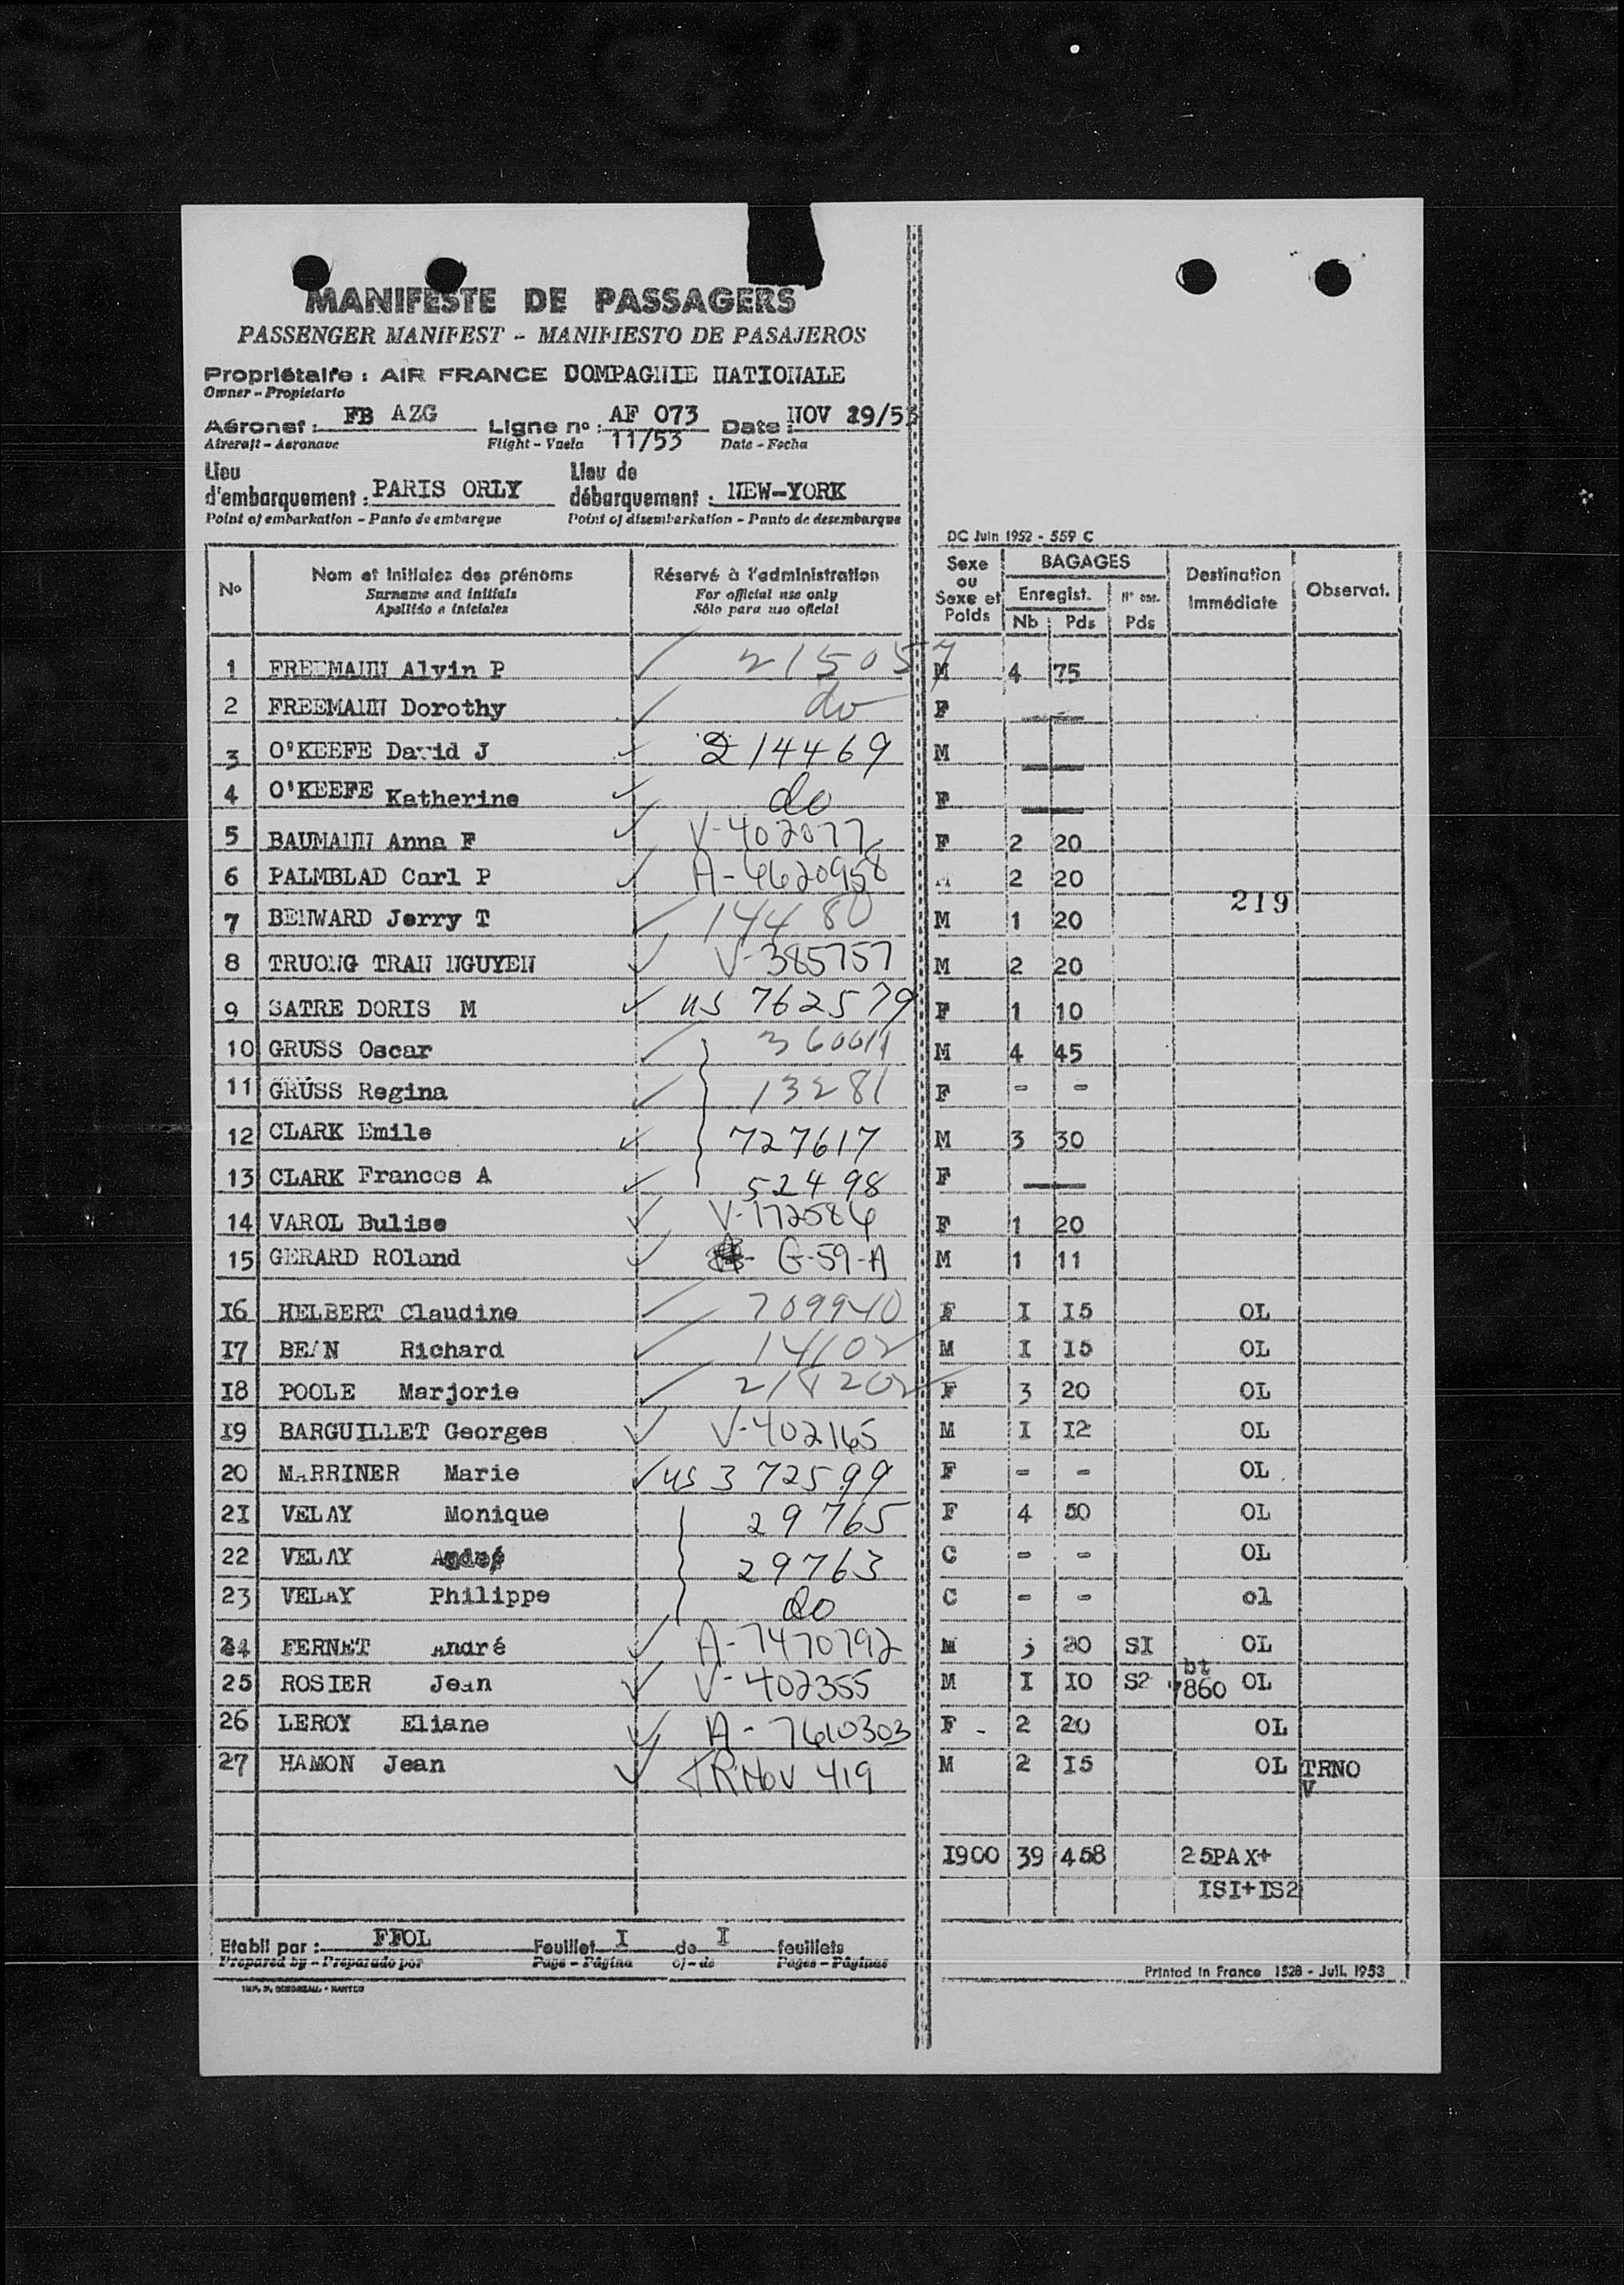 MANIFESTE DE PASSAGERS
PASSENGER MANIFEST - MANIFIESTO DE PASAJEROS
Propriétaire : AIR FRANCE COMPAGNIE NATIONALE
Owner - Propietario
Aéronef : FB AZG Ligne no : AF 073 Date : NOV
Aircraft - Aeronave Flight - Vuelo 11/53 Date - Fecha
Lieu d'embarquement : PARIS ORLY Lieu de débarquement : NEW-YORK
Point of embarkation - Punto de embarque Point of disembarkation - Punto de desembarque
DC Juin 1952 - 559 C
No Nom et initiales des prénoms Réservé à l'administration Sexe ou Sexe et Poids BAGAGES Destination immédiate Observat.
Surname and initials For official use only Enregist.
Apellido e iniciales Sólo para uso oficial Nb Pds Pds
1 FREEMANN Alvin P 215057 M 4 75
2 FREEMANN Dorothy do F
3 O'KEEFE David J 214469 M
4 O'KEEFE Katherine do F
5 BAUMANN Anna F V-402077 F 2 20
6 PALMBLAD Carl P A-4620958 2 20
219
7 BENWARD Jerry T 14480 M 1 20
8 TRUONG TRAN NGUYEN V-385757 M 2 20
9 SATRE DORIS M US 762579 F 1 10
10 GRUSS Oscar 360011 M 4 45
11 GRUSS Regina 13281 F - -
12 CLARK Emile 727617 M 3 30
13 CLARK Frances A 52498 F
14 VAROL Bulise V-172584 F 1 20
15 GERARD ROland G-59-A M 1 11
16 HELBERT Claudine 709940 F I I5 OL
I7 BEAN Richard 14102 M I I5 OL
I8 POOLE Marjorie 218202 F 3 20 OL
I9 BARGUILLET Georges V-402165 M I I2 OL
20 MARRINER Marie US 372599 F - - OL
2I VELAY Monique 29765 F 4 50 OL
22 VELAY André 29763 C - - OL
23 VELAY Philippe do C - - ol
24 FERNET André A-7470792 M SI OL
25 ROSIER Jean V-402355 M I I0 S2 bt 7860 OL
26 LEROY Eliane A-7610303 F - 2 20 OL
27 HAMON Jean TRNOV 419 M 2 I5 OL TRNO
V
I900 39 458 25PAX+
ISI+IS2
Etabli par : FFOL Feuillet I de I feuillets
Prepared by - Preparado por Page - Página of - de Pages - Páginas
Printed in France 1528 - Juil. 1953